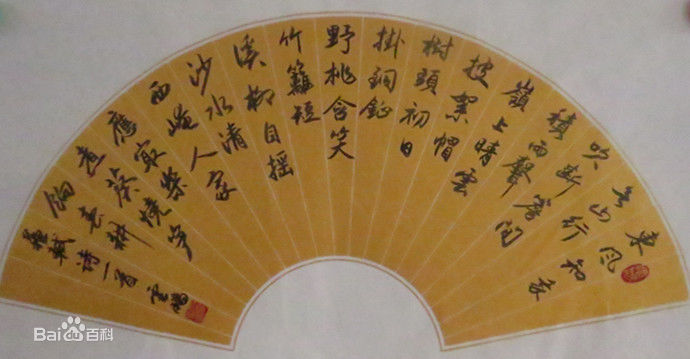 東風知我
欲山行
吹斷簷間
積雨聲
嶺上晴雲
披絮帽
樹頭初日
掛銅鉦
野桃含笑
竹籬短
溪柳自搖
沙水清
西崦人家
應最樂
煮葵燒筍
餉春耕
蘇軾詩一首
Bai百科